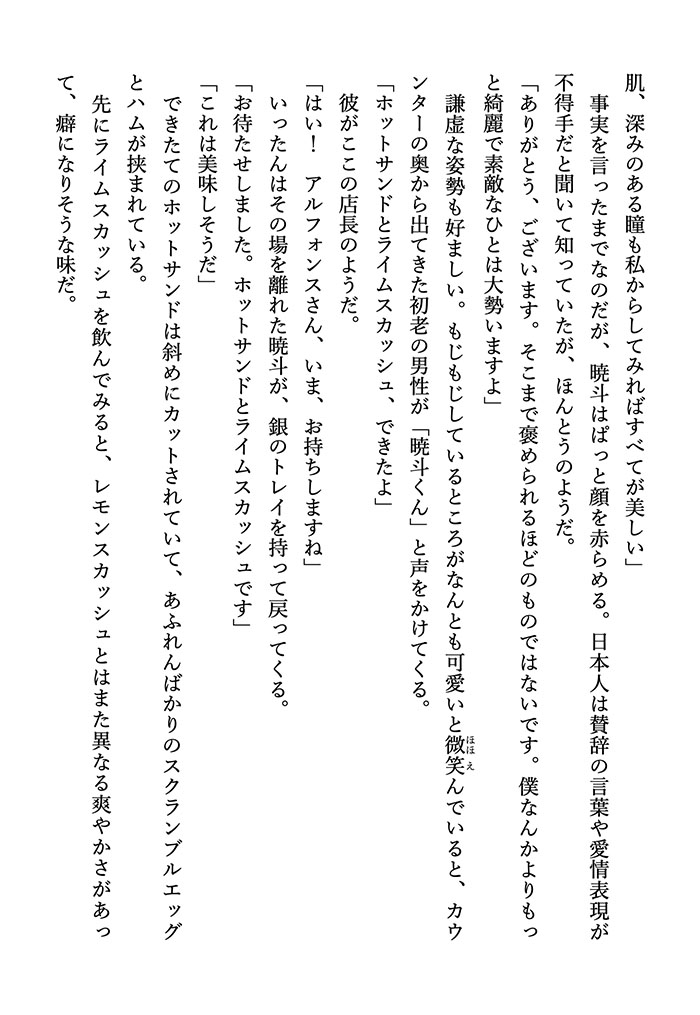 肌、深みのある瞳も私からしてみればすべてが美しい」
　事実を言ったまでなのだが、暁斗はぱっと顔を赤らめる。日本人は賛辞の言葉や愛情表現が
不得手だと聞いて知っていたが、ほんとうのようだ。
「ありがとう、ございます。そこまで褒められるほどのものではないです。僕なんかよりもっ
と綺麗で素敵なひとは大勢いますよ」
　謙虚な姿勢も好ましい。もじもじしているところがなんとも可愛いと微笑んでいると、カウ
ほほえ
ンターの奥から出てきた初老の男性が「暁斗くん」と声をかけてくる。
「ホットサンドとライムスカッシュ、できたよ」
　彼がここの店長のようだ。
「はい！　アルフォンスさん、いま、お持ちしますね」
　いったんはその場を離れた暁斗が、銀のトレイを持って戻ってくる。
「お待たせしました。ホットサンドとライムスカッシュです」
「これは美味しそうだ」
　できたてのホットサンドは斜めにカットされていて、あふれんばかりのスクランブルエッグ
とハムが挟まれている。
　先にライムスカッシュを飲んでみると、レモンスカッシュとはまた異なる爽やかさがあっ
て、癖になりそうな味だ。